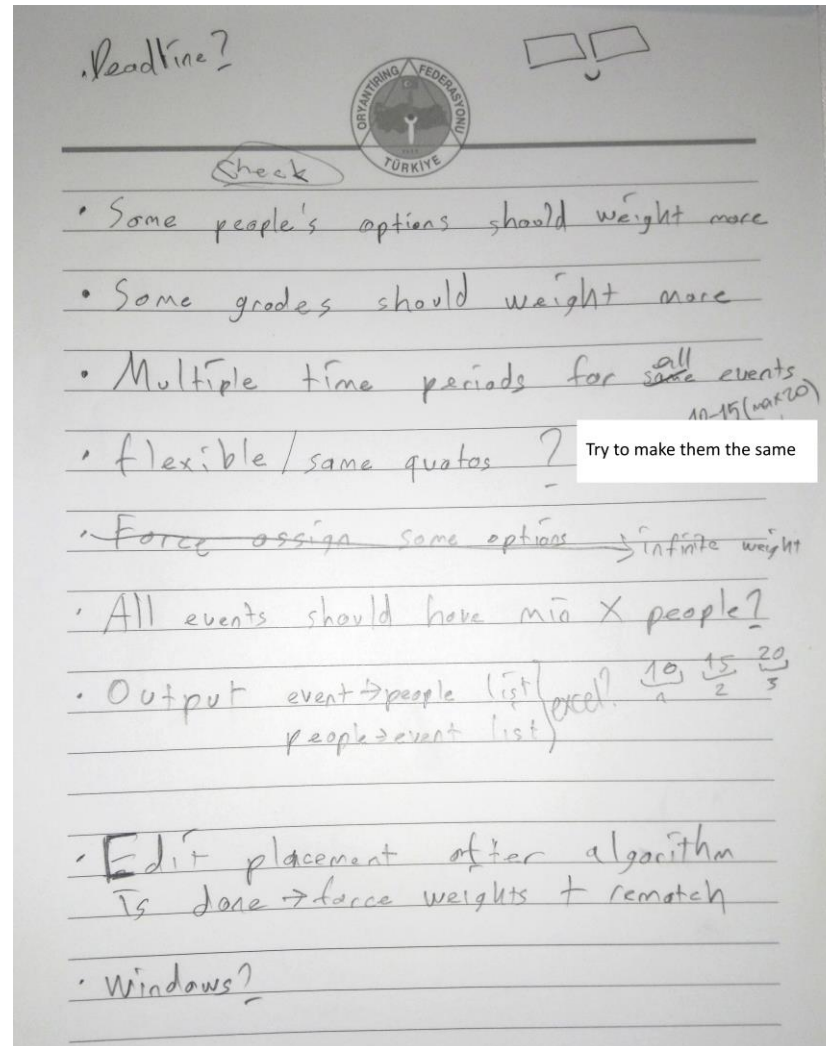 .Deadline?
ORYANTİRİNG FEDERASYONU
TÜRKİYE
Check
• Some people's options should weight more
• Some grades should weight more
• Multiple time periods for same all events
10-15 (max 20)
• flexible/same quotas ?
Try to make them the same
• Force assign some options → infinite weight
• All events should have min X people?
• Output event→people list excel? 10 15 20
1 2 3
people→event list
• Edit placement after algorithm
is done → force weights + rematch
• Windows?